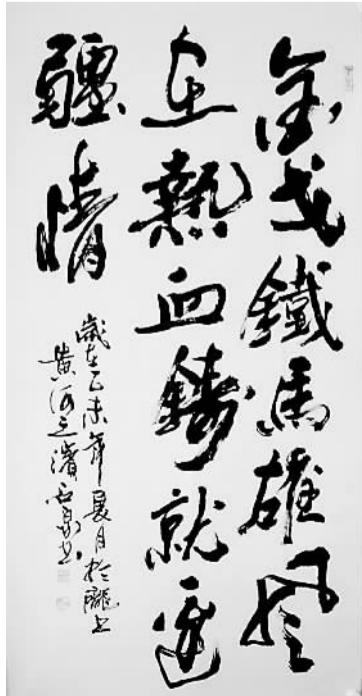 金戈鐵馬雄風
在熱血鑄就邊
疆情
歲在乙未年夏月於隴上
黄河之濱石泉书